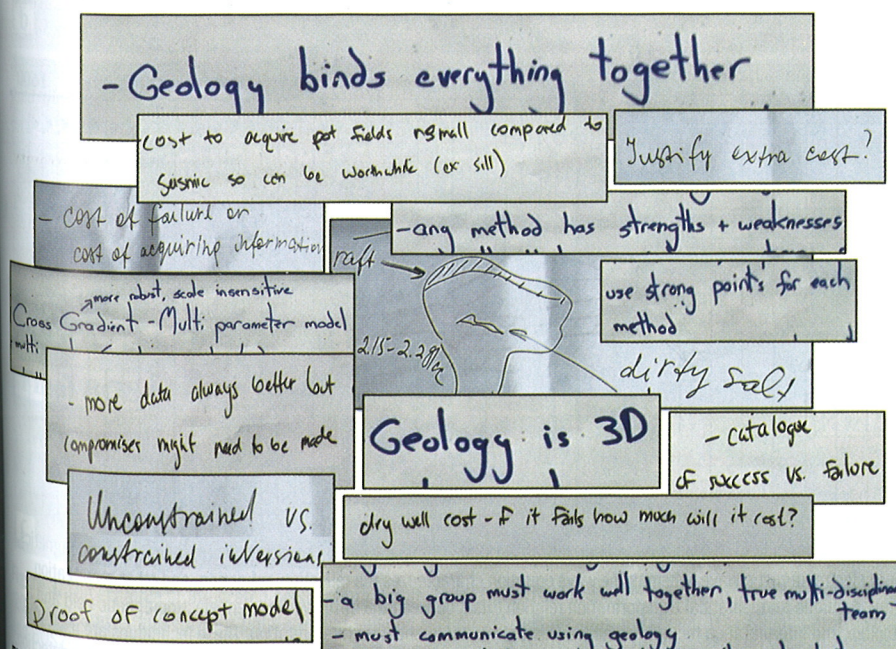 - Geology binds everything together
cost to acquire pot fields is small compared to
seismic so can be worthwhile (ex sill)
Justify extra cost?
- cost of failure or
cost of acquiring information
- any method has strengths + weaknesses
raft
more robust, scale insensitive
Cross Gradient - Multi parameter model
multi
use strong points for each
method
2.15-2.2g/
dirty salt
- more data always better but
compromises might need to be made
Geology is 3D
- catalogue
of success vs. failure
Unconstrained vs.
constrained inversions
dry well cost - if it fails how much will it cost?
Proof of concept model
- a big group must work well together, true multi-disciplina
team
- must communicate using geology